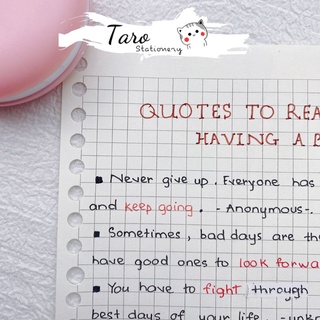 Taro
Stationery
QUOTES TO REA
HAVING A B
■ Never give up. Everyone has
and keep going. - Anonymous-.
■ Sometimes, bad days are the
have good ones to look forwa
■ You have to fight through
best days of your life. -unkn